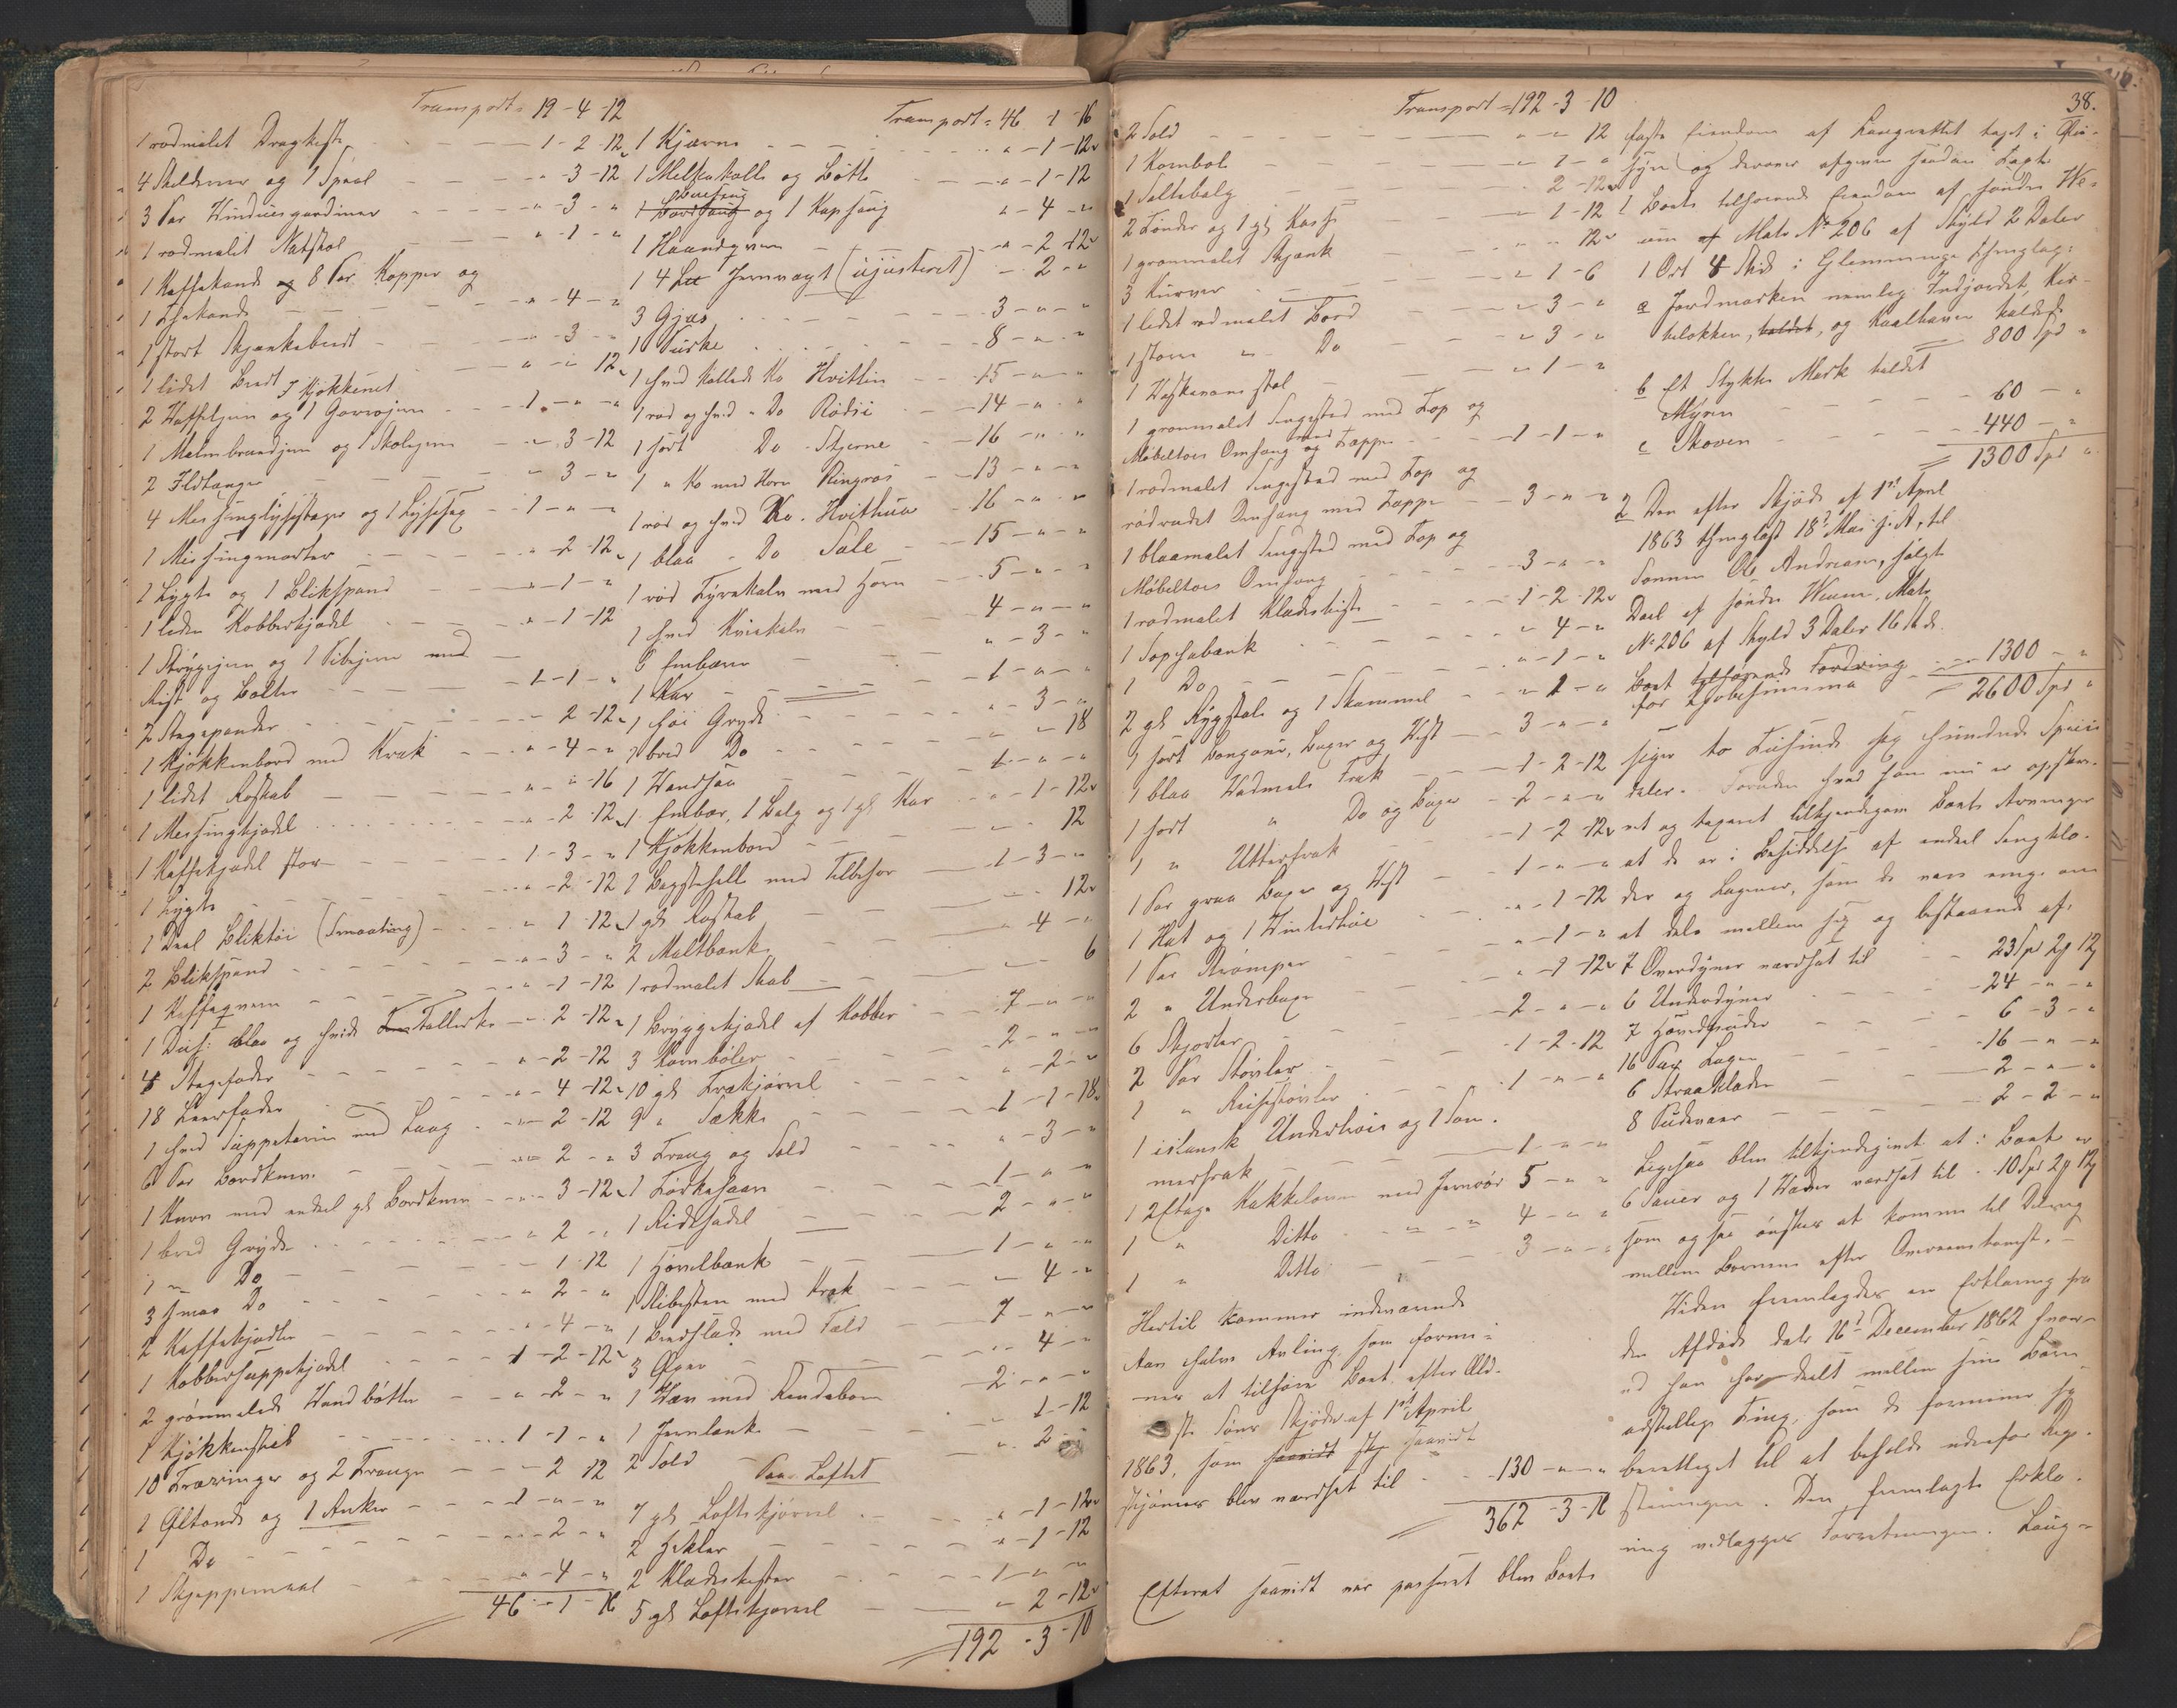 Transport = 19 - 4 - 12
1 rødmalet Dragkiste - 1 - 2 - 12
4 Skilderier og 1 Speil " - 3 - 12
3 Par Vinduesgardiner " - 3 - "
1 rødmalet Natstol " - 1 - "
1 Kaffekande og 8 Par Kopper og
1 Thekande " - 4 - "
1 stort Skjænkebret " - 3 - "
1 lidet Bret " - " - 12
I Kjøkkenet
2 Vaffeljern og 1 Goroejern 1 - " - "
1 Malmbrandjern og 1 Skolejern " - 3 - 12
2 Ildtænger " - 3 - "
4 Messinglysestager og 1 Lysesax 1 - " - "
1 Messingmorter " - 2 - 12
1 Lygte og 1 Blikspand " - 1 - "
1 liden Kobberkjedel " - 1 - 12
1 Strygejern og 1 Pibejern med
Rist og Bolter 1 - 1 - "
2 Stegepander " - 2 - 12
1 Kjøkkenbord med Krak " - 4 - "
1 lidet Roskab " - " - 16
1 Messingkjedel " - 2 - 12
1 Kaffekjedel stor 1 - 3 - "
1 Lygte " - 2 - 12
1 Deel Bliktøi (Smaating) " - 1 - 12
2 Blikspand " - 3 - "
1 Kaffeqvern " - 1 - 12
1 Dus: blaa og hvide Tallerker " - 2 - 12
4 Stegefade " - 2 - 12
18 Leerfade " - 4 - 12
1 hvid Suppeterin med Laag " - 2 - 12
6 Par Bordkniver " - 2 - "
1 Kurv med endeel gl. Bordkniver " - 3 - 12
1 bred Gryde " - 2 - "
1 " Do " - 1 - 12
3 smaa Do " - 2 - "
2 Kaffekjedler " - 4 - "
1 Kobbersuppekjedel 1 - 2 - 12
2 grønmalede Vandbøtter " - 2 - "
1 Kjøkkenskab 1 - 1 - "
10 Træringer og 2 Trauge " - 2 - 12
1 Øltønde og 1 Anker 1 - " - "
1 Do " - 2 - "
1 Skjeppemaal " - 4 - "
46 - 1 - 16
Transport = 46 - 1 - 16
1 Kjærne " - 1 - 12
1 Melkekolle og Bøtte " - 1 - 12
1 Buesaug og 1 Kapsaug " - 4 - "
1 Haandqvern " - 2 - 12
1 4 Lit Jernvægt (ujusteret) " - 2 - "
3 Gjæs 3 - " - "
1 Purke 8 - " - "
1 hvid kollede Ko Hvitlin 15 - " - "
1 rød og hvid " Do Rødsi 14 - " - "
1 sort Do Stjerne 16 - " - "
1 " Ko med Horn Ringros 13 - " - "
1 rød og hvid Ko. Hvithua 16 - " - "
1 blaa - Do Søle 15 - " - "
1 rød Tyrekalv med Horn 5 - " - "
1 hvid Kviekalv 4 - " - "
6 Embære " - 3 - "
1 Kar 1 - " - "
1 høi Gryde " - 3 - "
1 bred Do " - " - 18
1 Vandsaa 1 - " - "
1 Embær, 1 Balg og 1 gl. Kar " - 1 - 12
1 Kjøkkenbord " - " - 12
1 Bagstehelle med Tilbehør 1 - 3 - "
1 gl. Roskab " - " - 12
2 Maltbænke " - 4 - "
1 rødmalet Skab " - " - 6
1 Bryggekjedel af Kobber 7 - " - "
3 Kornbøler 2 - " - "
10 gl. Trækjørrel " - 2 - "
9 " Sække 1 - 1 - 18
3 Traug og Sold " - 3 - "
1 Tørkesaan 1 - " - "
1 Ridesadel 2 - " - "
1 Høvelbænk 1 - " - "
1 Slibesten med Krak " - 4 - "
1 Bredslæde med Fæld 7 - " - "
3 Øxer " - 4 - "
1 Væv med Rendebom 2 - " - "
1 Jernlænk " 1 - 12
2 Sold " 2 - "
Paa Loftet
7 gl. Loftskjørrel " - 1 - 12
2 Hekler " - 1 - 12
2 Klædeskister 1 - " - "
5 gl. Loftskjørrel " - 2 - 12
192 - 3 - 10
Transport = 192 - 3 - 10
2 Sold " - " 12
1 Kornbøle " 1 - "
1 Saltebalg 2 - 12
2 Tønder og 1 gl. Kasse " 1 - 12
1 grønmalet Skjænk " - " 12
3 Kurver " 1 - 6
1 lidet rødmalet Bord " 3 - "
1 større " Do " 3 - "
1 Væskevæs stol " 1 - "
1 grønmalet Sengested med Top og
Møbeltøis Omhæng med Kappe 1 - 1 - "
1 rødmalet Sengested med Top og
rødrudet Omhæng med Kappe 3 - " - "
1 blaamalet Sengested med Top og
Møbeltøis Omhæng 3 - " - "
1 rødmalet Klædeskiste 1 - 2 - 12
1 Sophabænk " 4 - "
1 Do " - 1 - "
2 gl. Rygstole og 1 Skammel " 1 - "
1 sort Bonjour, Buxer og Vest 3 - " - "
1 blaa Vadmels Frak 1 - 2 - 12
1 sort " Do og Buxer 2 - " - "
1 " Ytterfrak 1 - 2 - 12
1 Par graa Buxer og Vest 1 - " - "
1 Hat og 1 Vinterhue " - 1 - 12
1 Par Strømper " - 1 - "
2 " Underbuxer " - 1 - 12
6 Skjorter 2 - " - "
2 Par Støvler 1 - 2 - 12
1 " Reisestøvler 1 - " - "
1 islansk Undertrøie og 1 Som-
merfrak 1 - " - "
1 2 Etage Kakkelovn med Jernrør 5 - " - "
1 " Ditto " " 4 - " - "
1 " Ditto 3 - " - "
Hertil kommer indeværende
Aars halve Avling som formi-
nes at tilhøre Boet efter Æld-
ste Søns Skjøde af 1ste April
1863, som saavidt
skjønnes blev værdsat til 130 - " - "
362 - 3 - 16
Efterat saavidt var passeret blev Boets
38.
faste Eiendom af Laugrettet taget i Øie-
syn og derover afgiven saadan Taxt:
1 Boets tilhørende Eiendom af søndre We-
um af Matr No 206 af Skyld 2 Daler
1 Ort 4 Skil i Glemminge Thinglag:
a Jordmarken nemlig Indjordet, Kir-
kelokken, og Kaalhaven kaldet 800 Spd "
b Et Stykke Mark kaldet
Myren 60 - "
c Skoven 440 - "
1300 Spd "
2 Den efter Skjøde af 1ste April
1863 thinglæst 18de Mai s. A, til
Sønnen Ole Andreasen, solgte
Deel af søndre Weum, Matr
No 206 af Skyld 3 Daler 16 Sk.
Boet tilhørende Fordring
for Kjøbesumma 1300 - "
2600 Spd "
siger to Tusinde sex hundrede Specie
daler. Foruden hvad som nu er opskre-
vet og taxeret tilkjendegave Boets Arvinger
at de er i Besiddelse af endeel Sengklæ-
der og Lagener, som de vare enige om
at dele mellem sig og bestaaende af:
7 Overdyner værdsat til 23 Spd 2 12
6 Underdyner 24 - " - "
7 Hovedpuder 6 - 3 - "
16 Par Lagen 16 - " - "
6 Straaklæder 2 - " - "
8 Pudevaar 2 - 2 - "
Ligesaa blev tilkjendegivet at i Boet er
6 Sauer og 1 Væder værdsat til 10 Spd 2 12
som ogsaa ønskes at komme til Deling
mellem Børnene efter Overeenskomst.
Videre fremlagdes en Erklæring fra
den Afdøde datr 16de December 1862 hvor-
ved han har deelt mellem sine Børn
adskillige Ting, som de formener sig
berettiget til at beholde udenfor Regi-
streringen. Den fremlagte Erklæ-
ring vedlægges Forretningen. Laug-